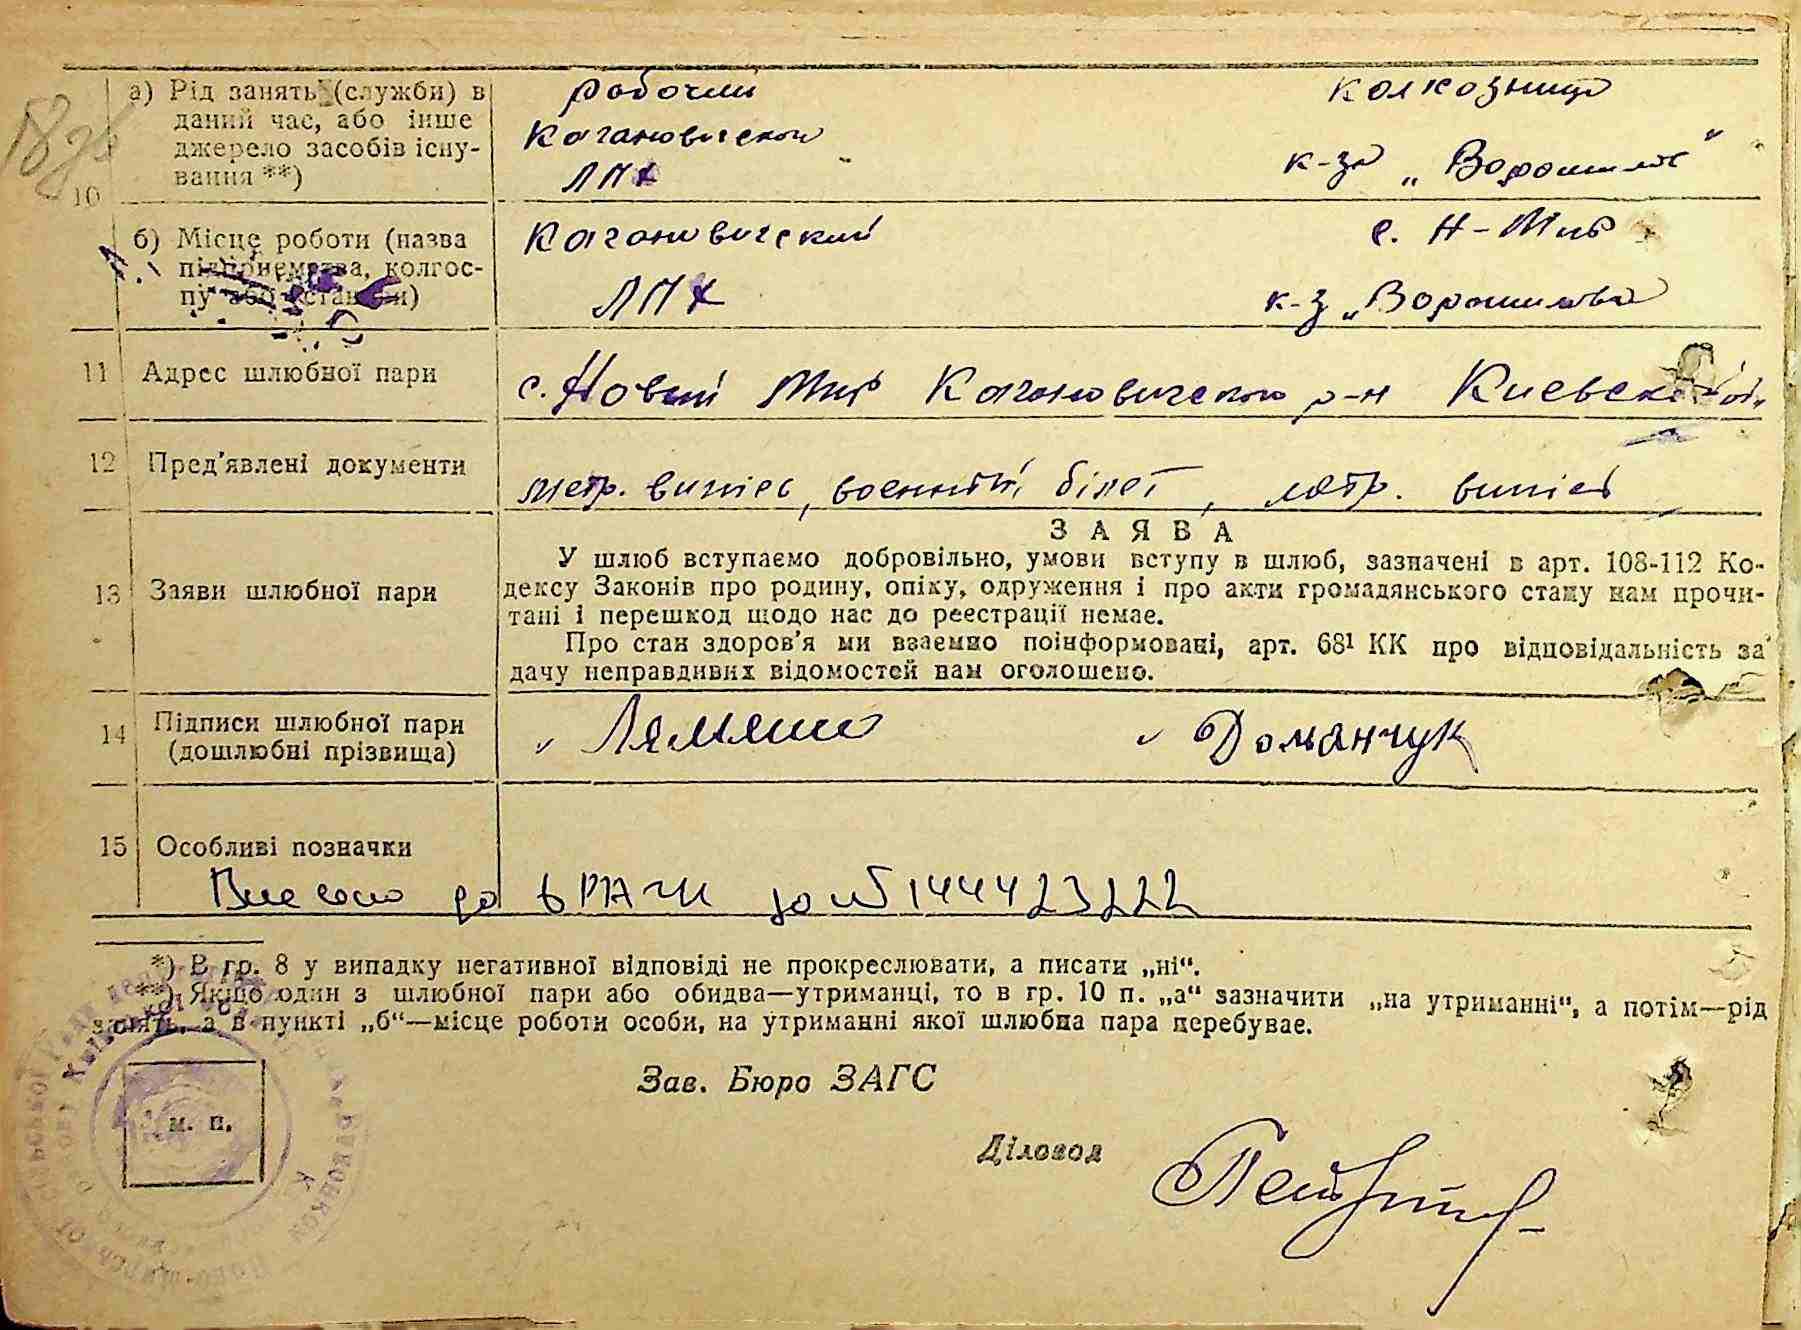 10
а) Рід занять (служби) в даний час, або інше джерело засобів існування **)
рабочий
Кагановический
ЛПХ
колхозница
к-за „Ворошилова"
б) Місце роботи (назва підприємства, колгоспу або установи)
Кагановический
ЛПХ
с. Н-Мир
к-з „Ворошилова
11 Адрес шлюбної пари
с. Новый Мир Кагановического р-н Киевской обл.
12 Пред'явлені документи
метр. випись, воєнный білет, метр. випись
З А Я В А
13 Заяви шлюбної пари
У шлюб вступаємо добровільно, умови вступу в шлюб, зазначені в арт. 108-112 Ко-
дексу Законів про родину, опіку, одруження і про акти громадянського стану нам прочи-
тані і перешкод щодо нас до реєстрації немає.
Про стан здоров'я ми взаємно поінформовані, арт. 68¹ КК про відповідальність за
дачу неправдивих відомостей нам оголошено.
14 Підписи шлюбної пари
(дошлюбні прізвища)
Доманчук
15 Особливі позначки
Внесено до
144423222
*) В гр. 8 у випадку негативної відповіді не прокреслювати, а писати „ні“.
**) Якщо один з шлюбної пари або обидва—утриманці, то в гр. 10 п. „а“ зазначити „на утриманні“, а потім—рід
занять, а в пункті „б“—місце роботи особи, на утриманні якої шлюбна пара перебуває.
Зав. Бюро ЗАГС
м. п.
Діловод